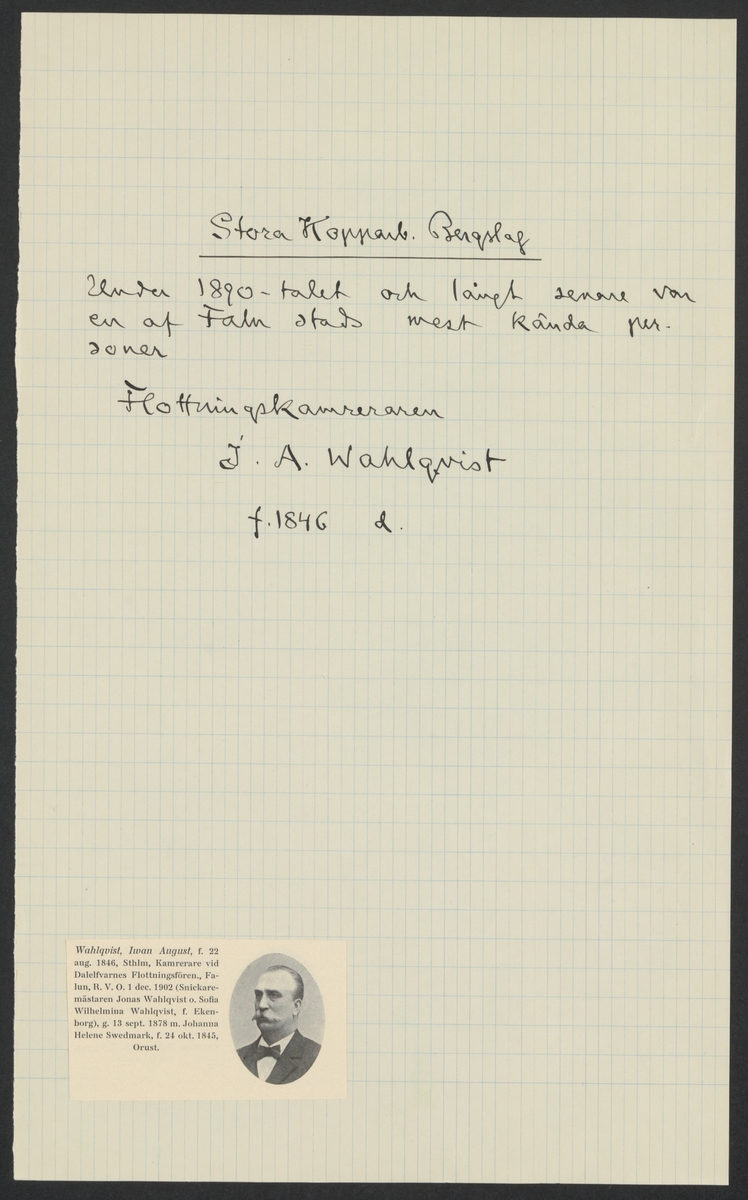 Stora Kopparb. Bergslag
Under 1890-talet och långt senare var
en af Falu stads mest kända per-
soner
Flottningskamreraren
I. A. Wahlqvist
f. 1846 d.
Wahlqvist, Iwan August, f. 22
aug. 1846, Sthlm, Kamrerare vid
Dalelfvarnes Flottningsfören., Fa-
lun, R. V. O. 1 dec. 1902 (Snickare-
mästaren Jonas Wahlqvist o. Sofia
Wilhelmina Wahlqvist, f. Eken-
borg), g. 13 sept. 1878 m. Johanna
Helene Swedmark, f. 24 okt. 1845,
Orust.